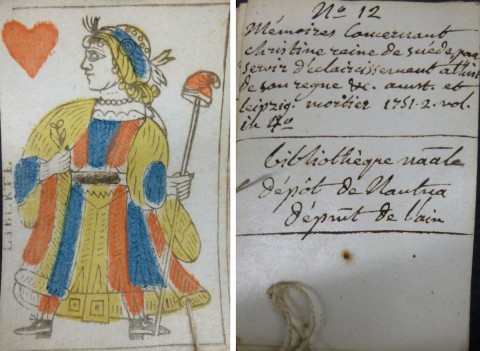 LIBERTE
No 12
Mémoires Concernant
christine reine de suede pour
servir d'eclaircissement a l'hist
de son regne &c. amst. et
leipzig. mortier 1751. 2. vol.
in 4to
bibliothèque naãle
dépôt de Nantua
dépmt de l'ain